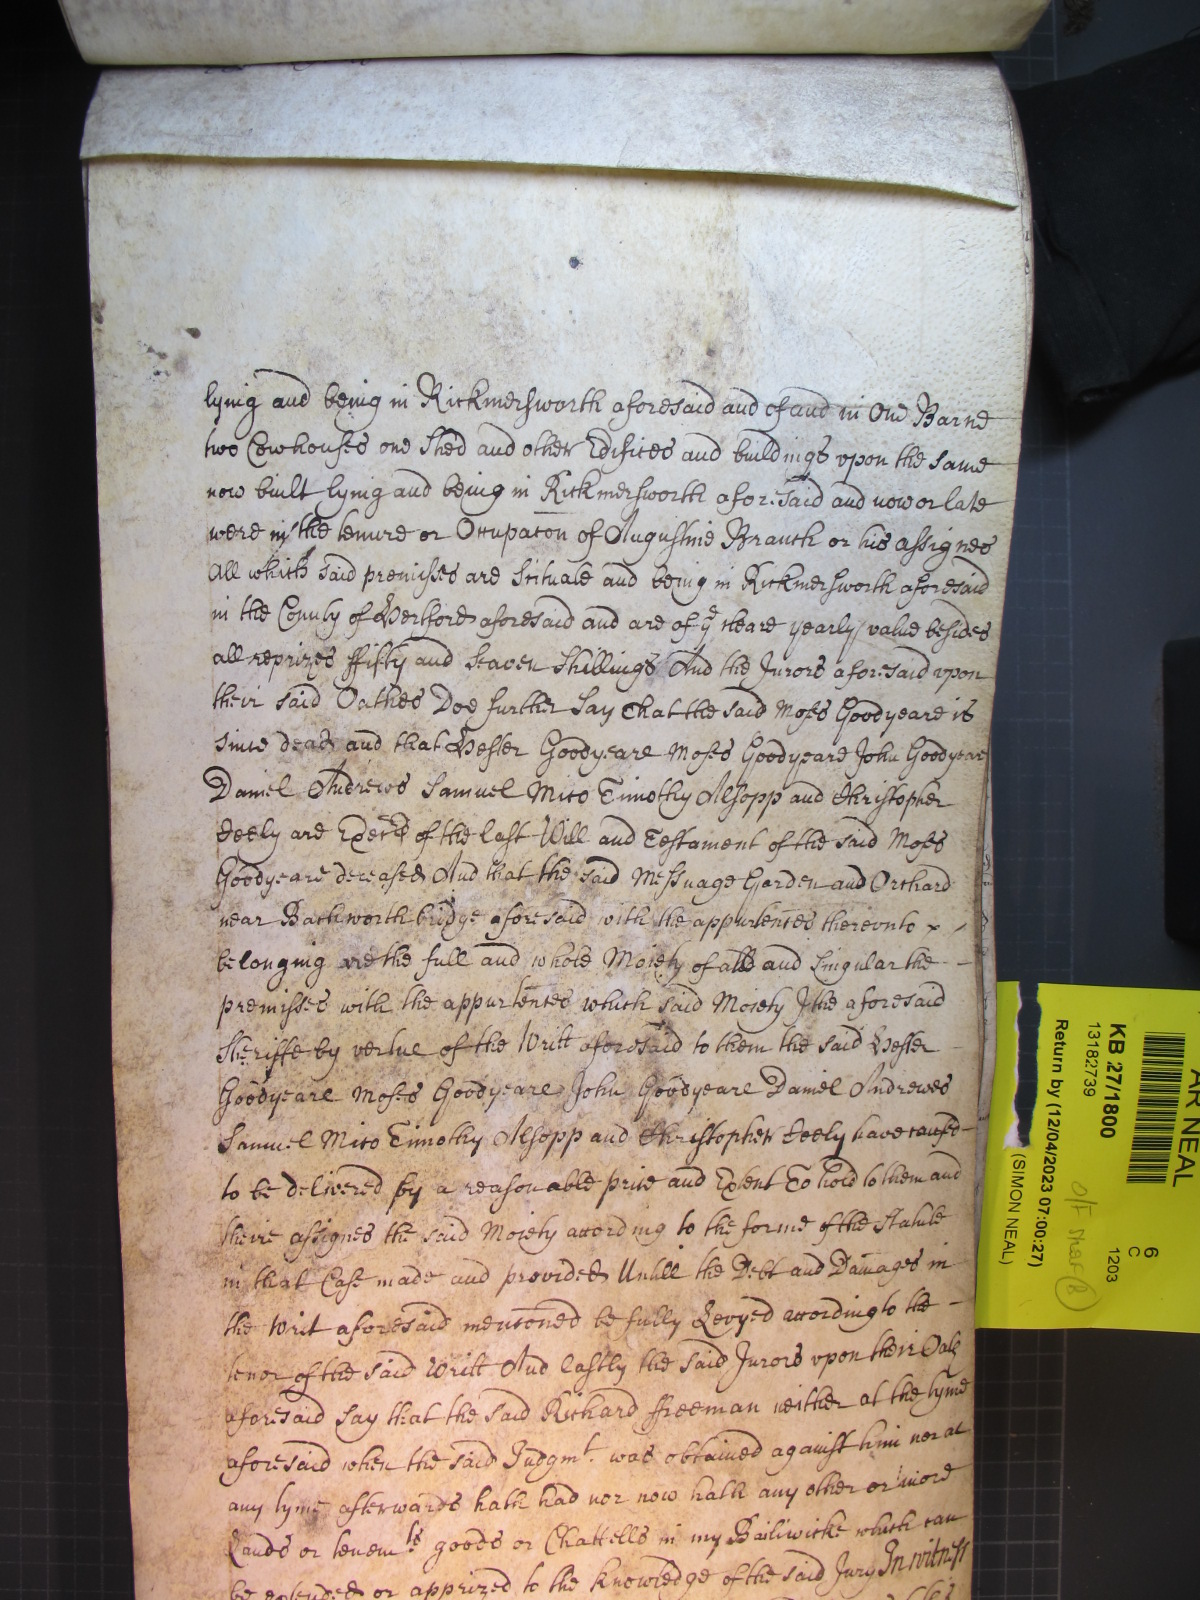 lying and being in Rickmersworth aforesaid and of and in One Barne
two Cowhouses one Shed and other Edifices and buildings vpon the same
now built lying and being in Rickmersworth aforesaid and now or late
were in the tenure or Occupacon of Augustine Branch or his assignes
All which said premisses are scituate and being in Rickmersworth aforesaid
in the County of Hertford aforesaid and are of ye cleare yearly value besides
all reprizes ffifty and seaven shillings And the Jurors aforesaid vpon
their said Oathes Doe further say That the said Moses Goodyeare is
since dead and that Hester Goodyeare Moses Goodyeare John Goodyeare
Daniel Andrews Samuel Mico Timothy Alsopp and Christopher
Seely are Execrs of the last Will and Testament of the said Moses
Goodyeare deceased And that the said Messuage Garden and Orchard
near Batchworth bridge aforesaid with the appurtences therevnto x
belonging are the full and whole Moiety of all and singular the
premisses with the appurtences which said Moiety I the aforesaid
Sheriffe by vertue of the Writt aforesaid to them the said Hester
Goodyeare Moses Goodyeare John Goodyeare Daniel Andrewes
Samuel Mico Timothy Alsopp and Christopher Seely have caused
to be delivered by a reasonable price and Extent To hold to them and
theire assignes the said Moiety according to the forme of the Statute
in that Case made and provided Untill the Debt and Damages in
the Writ aforesaid mencioned be fully Levyed according to the
tenor of the said Writt And lastly the said Jurors vpon their Oath
aforesaid say that the said Richard ffreeman neither at the tyme
aforesaid when the said Judgmt. was obtained against him nor at
any tyme afterwards hath had nor now hath any other or more
Lands or tenemts goods or Chattells in my Bailiwicke which can
be extended or apprized to the knowledge of the said Jury In witness
AR NEAL
KB 27/1800
13182739
Return by (12/04/2023 07:00:27)
(SIMON NEAL)
6
C
1203